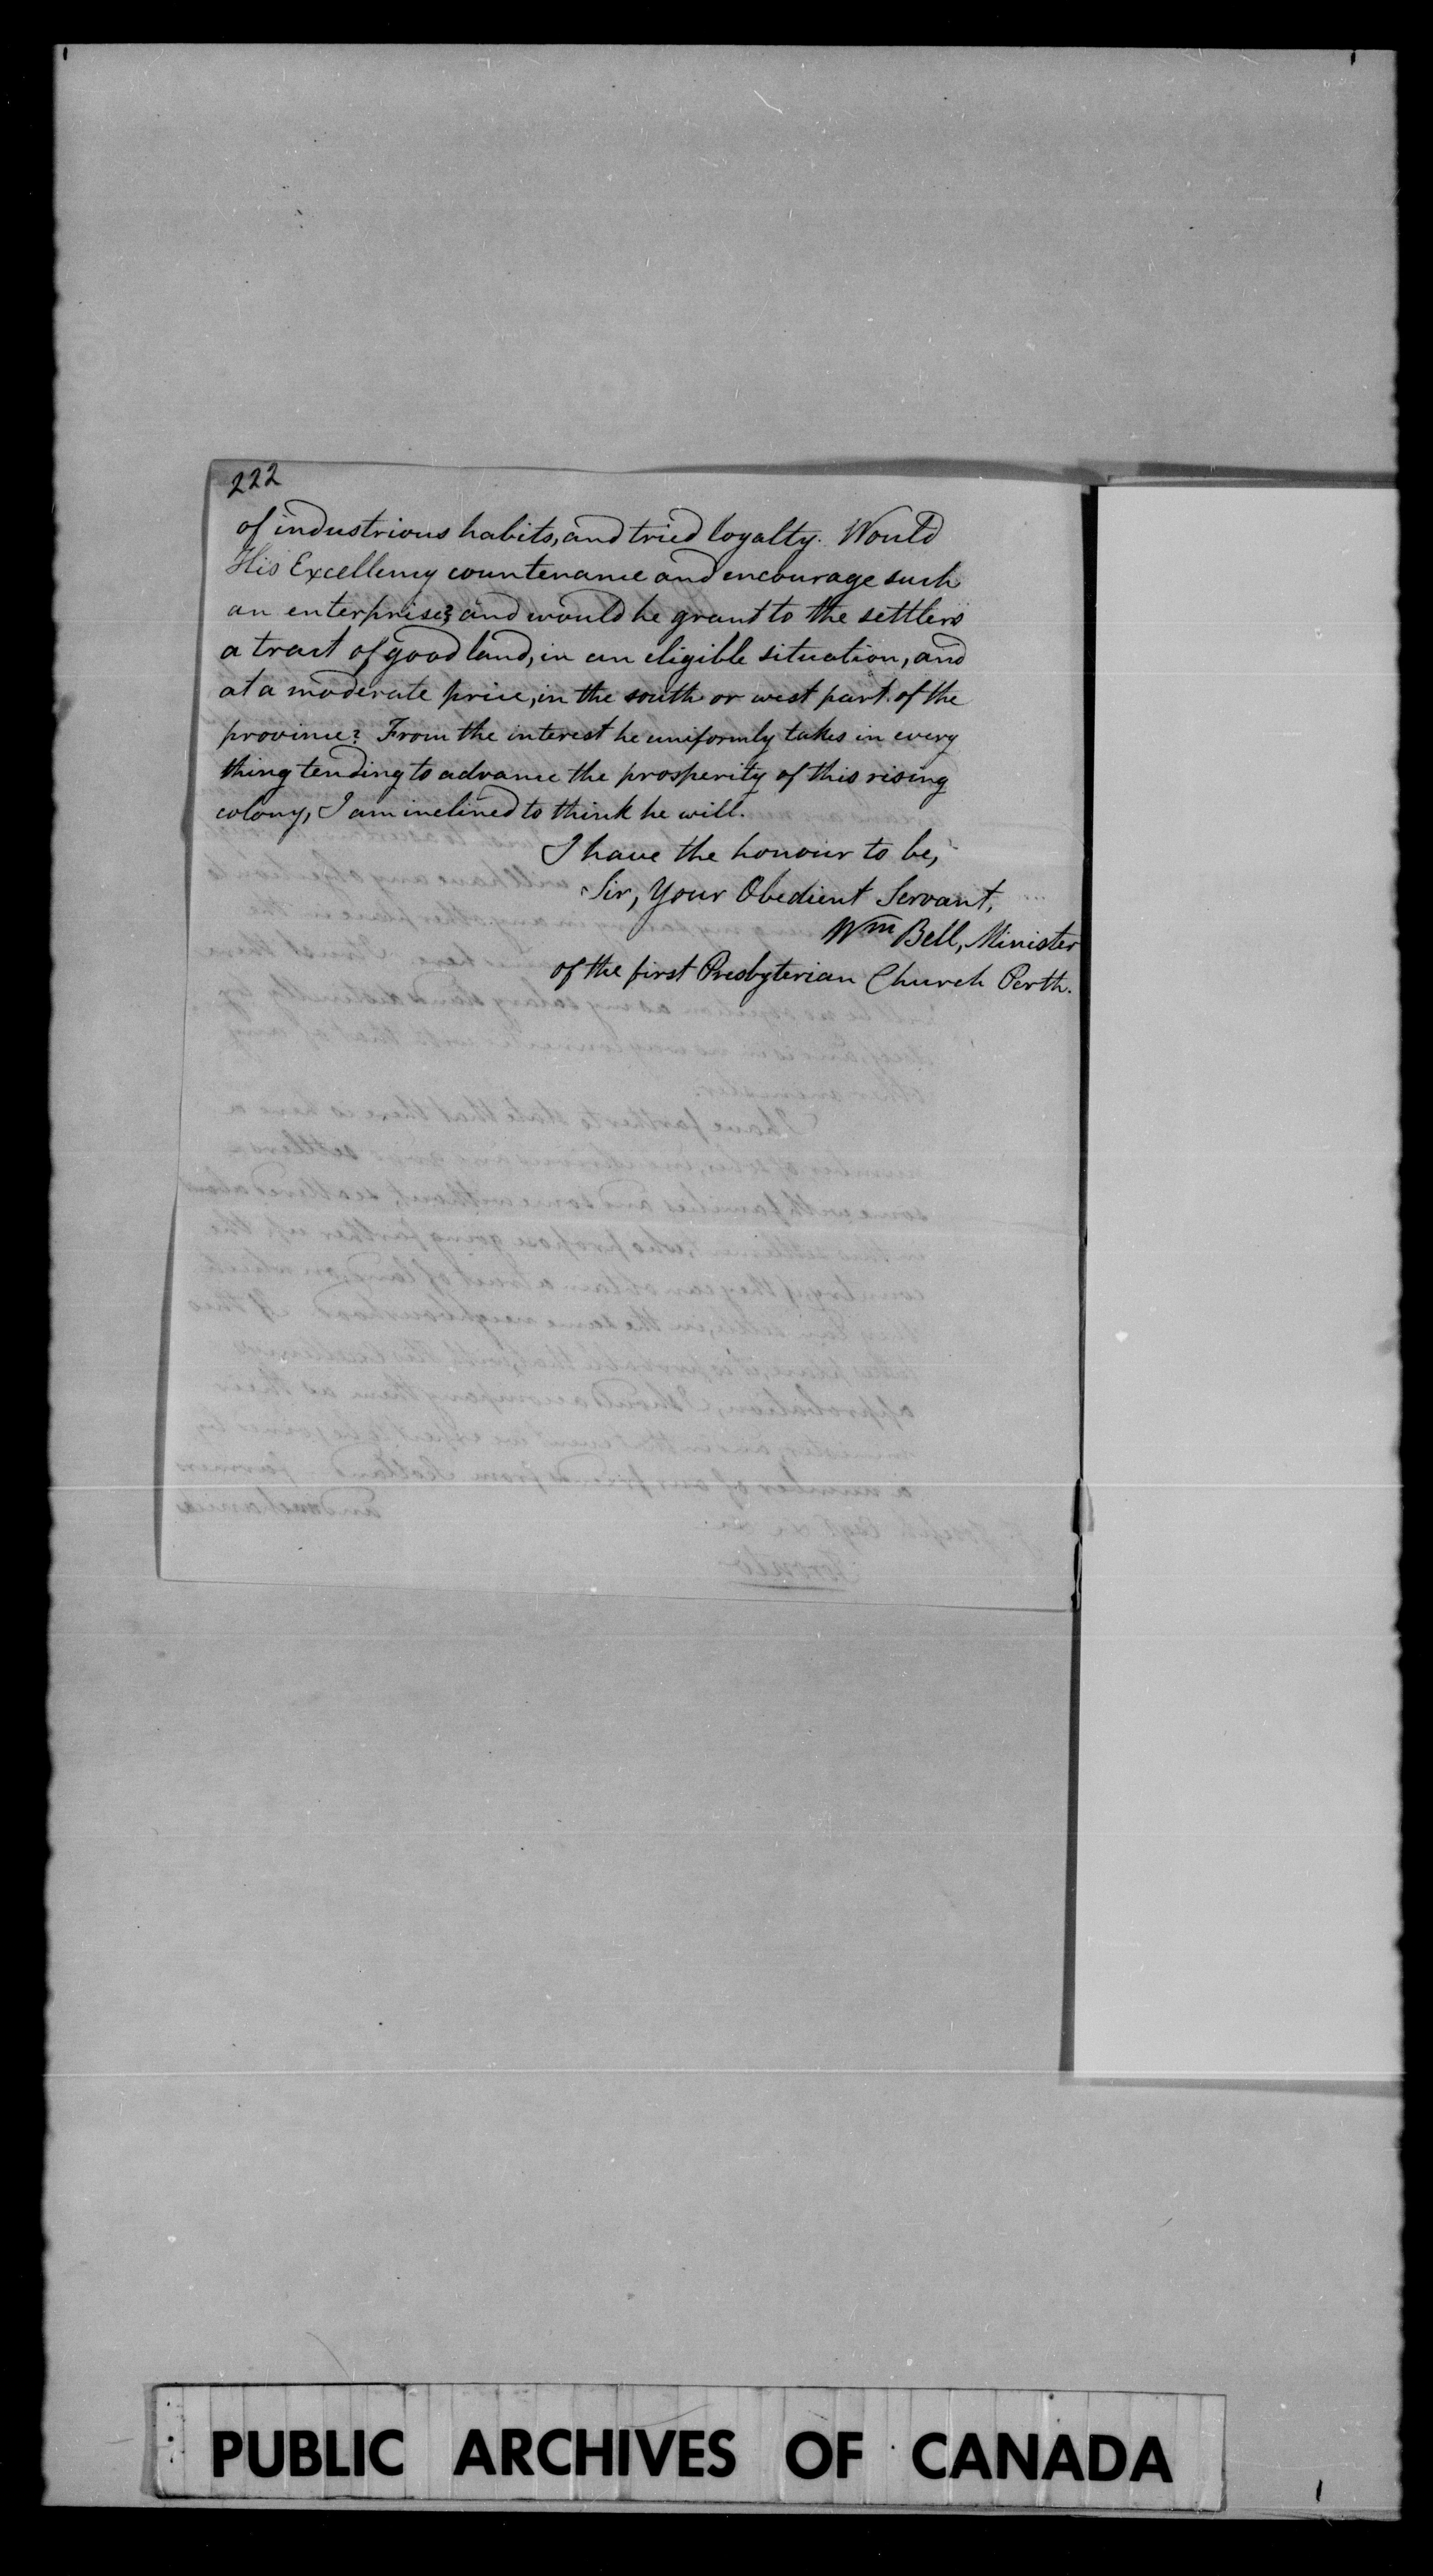 222
of industrious habits, and tried loyalty. Would
His Excellency countenance and encourage such
an enterprise? and would he grant to the settlers
a tract of good land, in an eligible situation, and
at a moderate price, in the south or west part of the
province? From the interest he uniformly takes in every
thing tending to advance the prosperity of this rising
colony, I am inclined to think he will.
I have the honour to be,
Sir, Your Obedient Servant,
Wm Bell, Minister
of the first Presbyterian Church Perth.
PUBLIC ARCHIVES OF CANADA